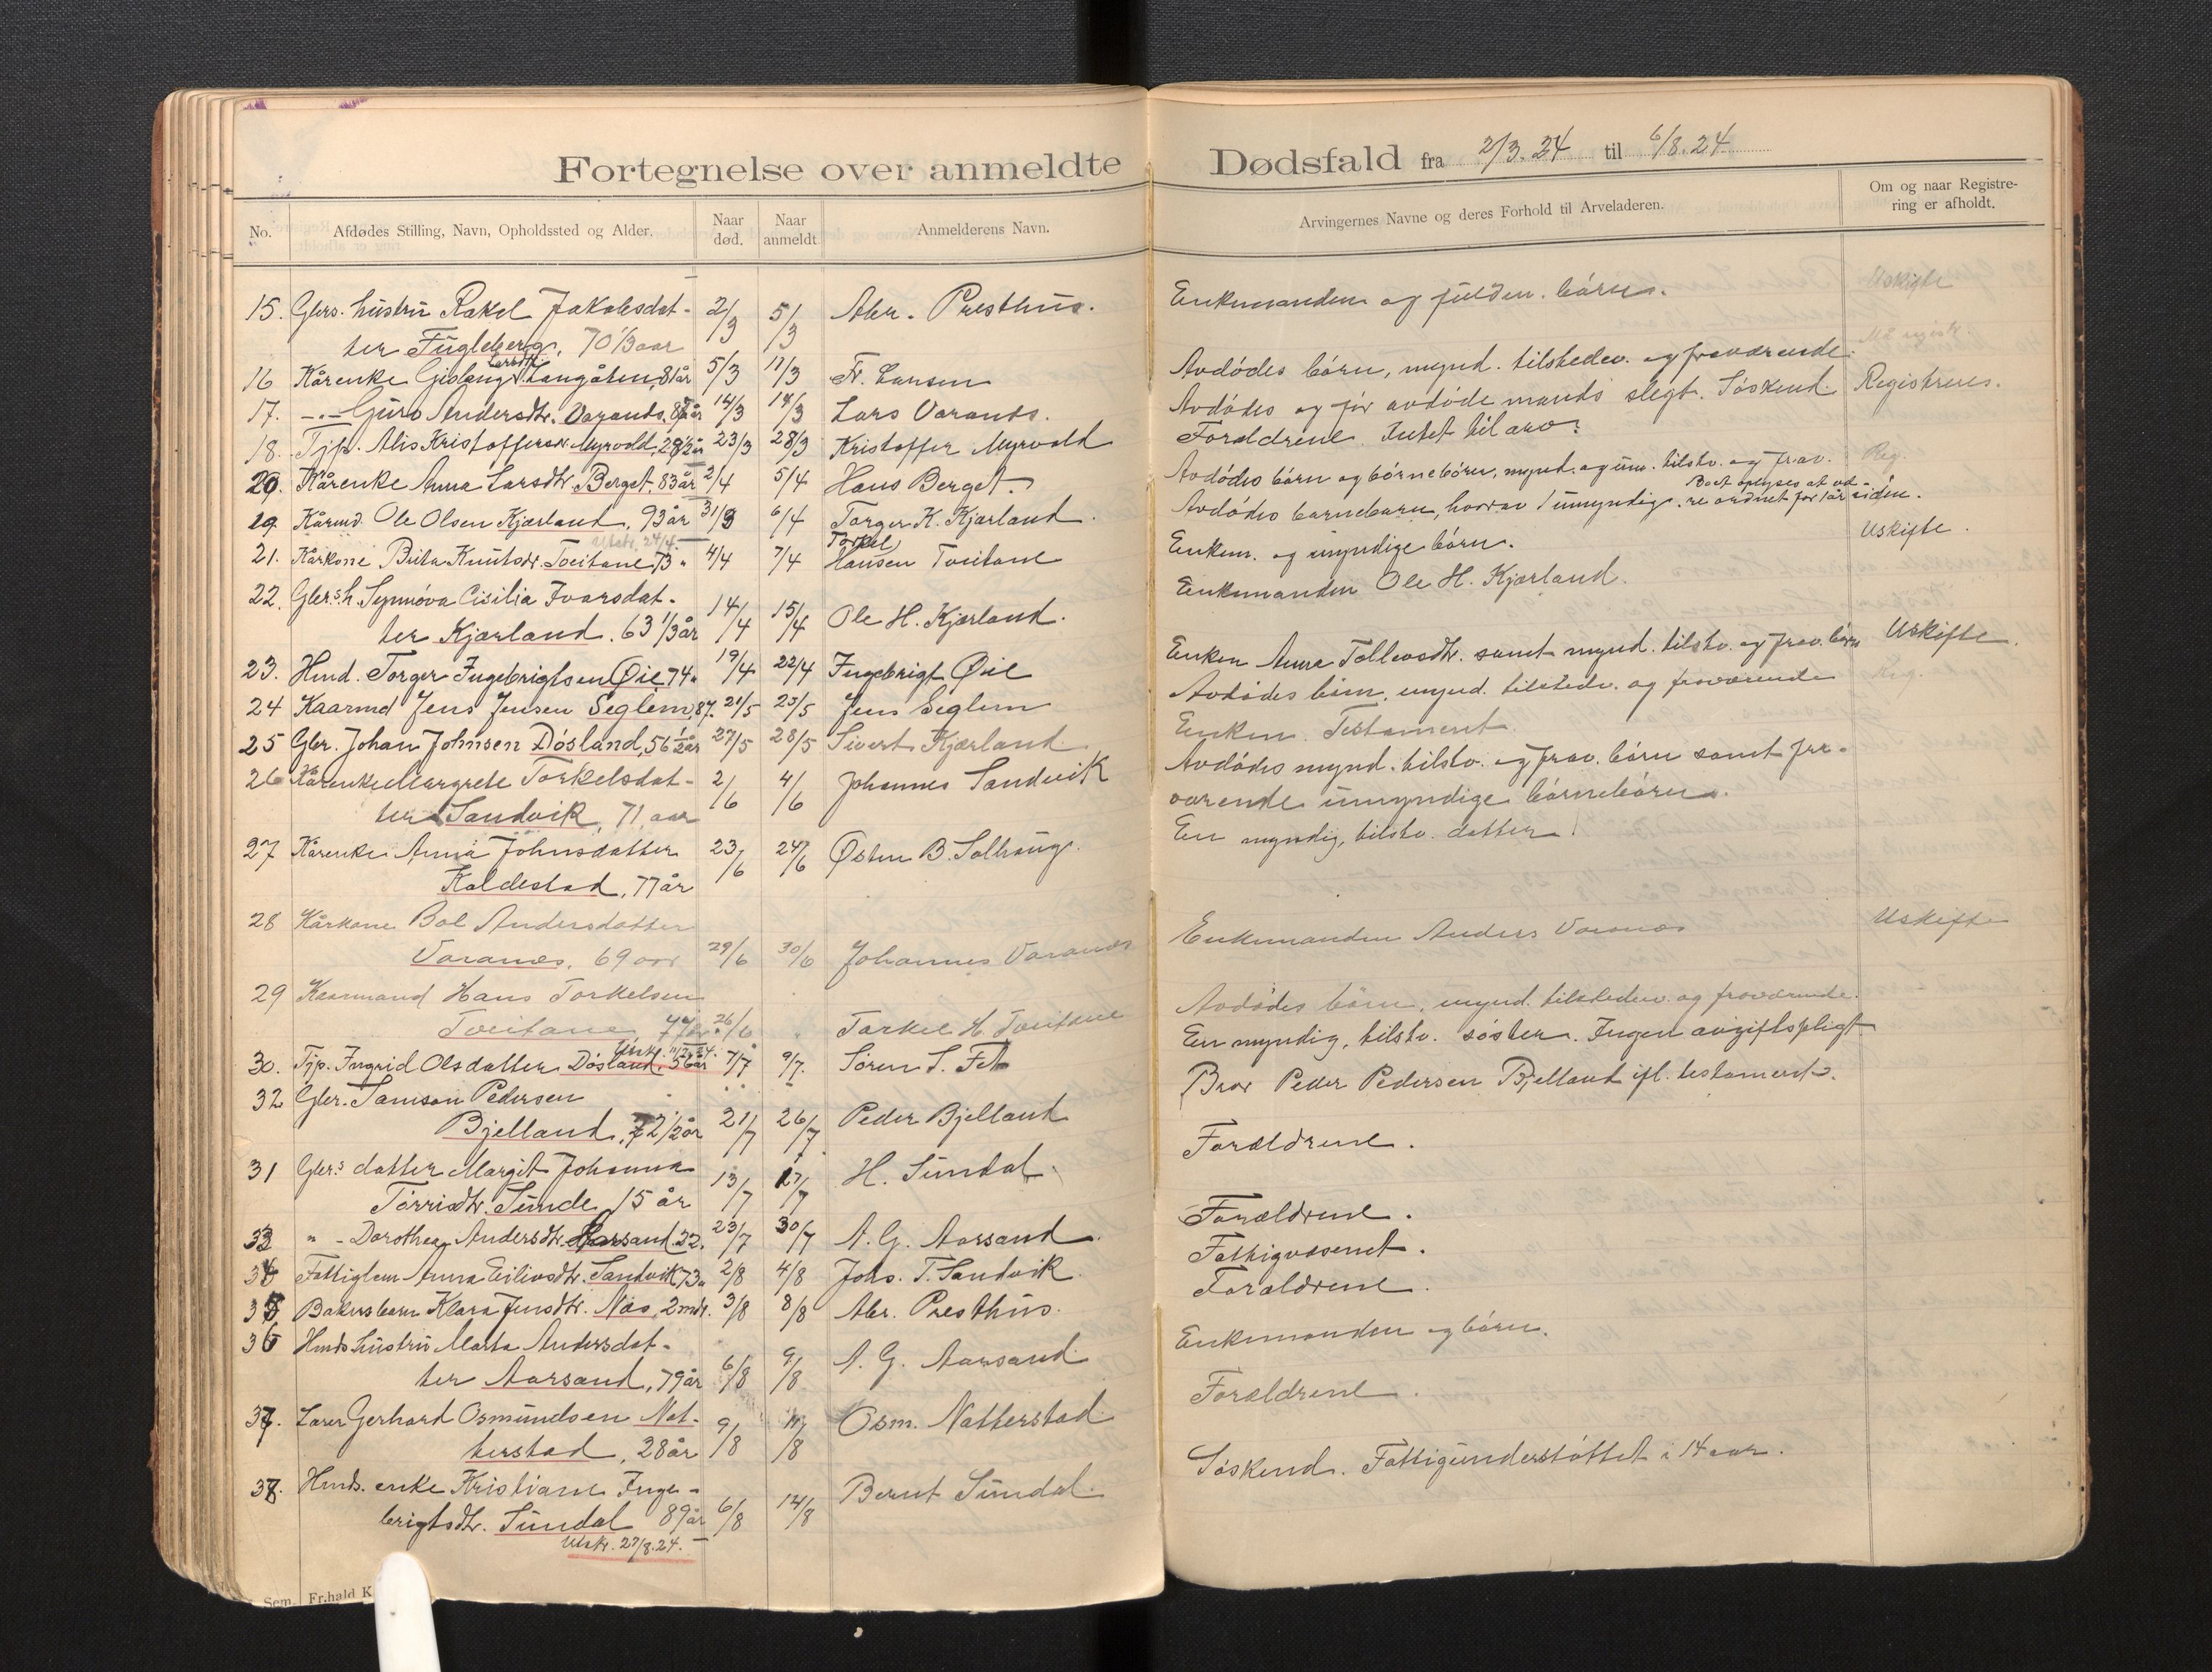 Fortegnelse over anmeldte Dødsfald fra 2/3.24 til 6/8.24
No.
Afdødes Stilling, Navn, Opholdssted og Alder.
Naar død.
Naar anmeldt.
Anmelderens Navn.
Arvingernes Navne og deres Forhold til Arveladeren.
Om og naar Registre-
ring er afholdt.
15. Gbrs. hustru Rakel Jakobsdat- 2/3 5/3 Abr. Presthus. Enkemanden og fuldm. børn. Uskifte
ter Fugleberg, 70 1/3 aar
16 Kårenke Gislaug Larsdtr. Langåsen, 81 år 5/3 11/3 Fr. Larsen Avdødes børn, mynd. tilstedev. og fraværende.
17. -"- Guro Andersdtr. Varanes, år 14/3 14/3 Lars Varanes. Avdødes og før avdøde mands slegt. Søskend. Registreres.
18. Tjp. Alis Kristoffersdtr. Myrvold, 28 1/2 år 23/3 28/3 Kristoffer Myrvold Forældrene. Intet til arv.
20. Kårenke Anna Larsdtr. Berget, 83 år 2/4 5/4 Hans Berget. Avdødes børn og børnebørn, mynd. og um. tilstv. og frav. Reg.
19. Kårmd. Ole Olsen Kjærland, 93 år 31/3 6/4 Torger K. Kjærland. Avdødes barnebarn, hvorav 1 umyndig. Boet oplyses at væ-
re ordnet for 1 år siden.
Utskr. 24/4
21. Kårkone Brita Knutsdtr. Tveitane 73 " 4/4 7/4 Torkel Hansen Tveitane Enkem. og myndige børn. Uskifte.
22. Gbrs. h. Synnøva Cisilia Ivarsdat- 14/4 15/4 Ole H. Kjærland. Enkemanden Ole H. Kjærland.
ter Kjærland. 63 1/3 år
23. Hmd. Torger Ingebrigtsen Øie 74 " 19/4 22/4 Ingebrigt Øie Enken Anna Tollevsdtr. samt mynd. tilstv. og frav. børn Uskifte.
24 Kaarmd Jens Jensen Seglem, 87. 21/5 23/5 Jens Seglem Avdødes børn, mynd. tilstedv. og fraværende Reg.
25 Gbr. Johan Johnsen Døsland, 56 1/2 år 27/5 28/5 Sivert Kjærland. Enken. Testament.
26 Kårenke Margrete Torkelsdat- 2/6 4/6 Johannes Sandvik Avdødes mynd. tilstv. og frav. børn samt fra-
ter Sandvik, 71 aar værende umyndige børnebørn.
27 Kårenke Anna Johnsdatter 23/6 24/6 Østen B. Solhaug. En myndig, tilstv. datter.
Koldestad, 77 år
28 Kårkone Bol Andersdatter
Varanes, 69 aar 29/6 30/6 Johannes Varanes Enkemanden Anders Varanes Uskifte
29 Kaarmand Hans Torkelsen
Tveitane, 77 år 26/6 " Torkel H. Tveitane Avdødes børn, mynd. tilstedev. og fraværende.
Utskr. 11/7.24.
30. Tjp. Ingrid Olsdatter Døsland, 56 år 7/7 9/7. Søren S. Fet En myndig, tilstv. søster. Ingen avgiftspligt
32 Gbr. Samson Pedersen
Bjelland, 72 1/2 år 21/7 26/7 Peder Bjelland Bror Peder Pedersen Bjelland ifl. testament.
31 Gbr.s datter Margit Johanna 13/7 27/7 H. Sundal. Forældrene.
Torrisdtr. Sunde, 15 år
33 " - Dorothea Andersdtr. Aarsand 22. 23/7 30/7 A. G. Aarsand. Forældrene.
34 Fattiglem Anna Eilivsdtr. Sandvik, 73 " 2/8 4/8 Johs. T. Sandvik. Fattigvæsenet.
35 Bakersbarn Klara Jensdtr. Næs, 2 mdr. 3/8 8/8 Abr. Presthus. Forældrene.
36 Hmds hustru Marta Andersdat-
ter Aarsand, 79 år 6/8 9/8 A. G. Aarsand Enkemanden og børn.
37. Lærer Gerhard Osmundsen Nat- 9/8 11/8 Osm. Natterstad Forældrene.
terstad, 28 år
38. Hmds. enke Kristiane Inge-
brigtsdtr. Sundal 89 år 6/8 12/8 Bernt Sundal. Søskend. Fattigunderstøttet i 14 aar.
Utskr. 27/8.24.
Sem. Fr.hald